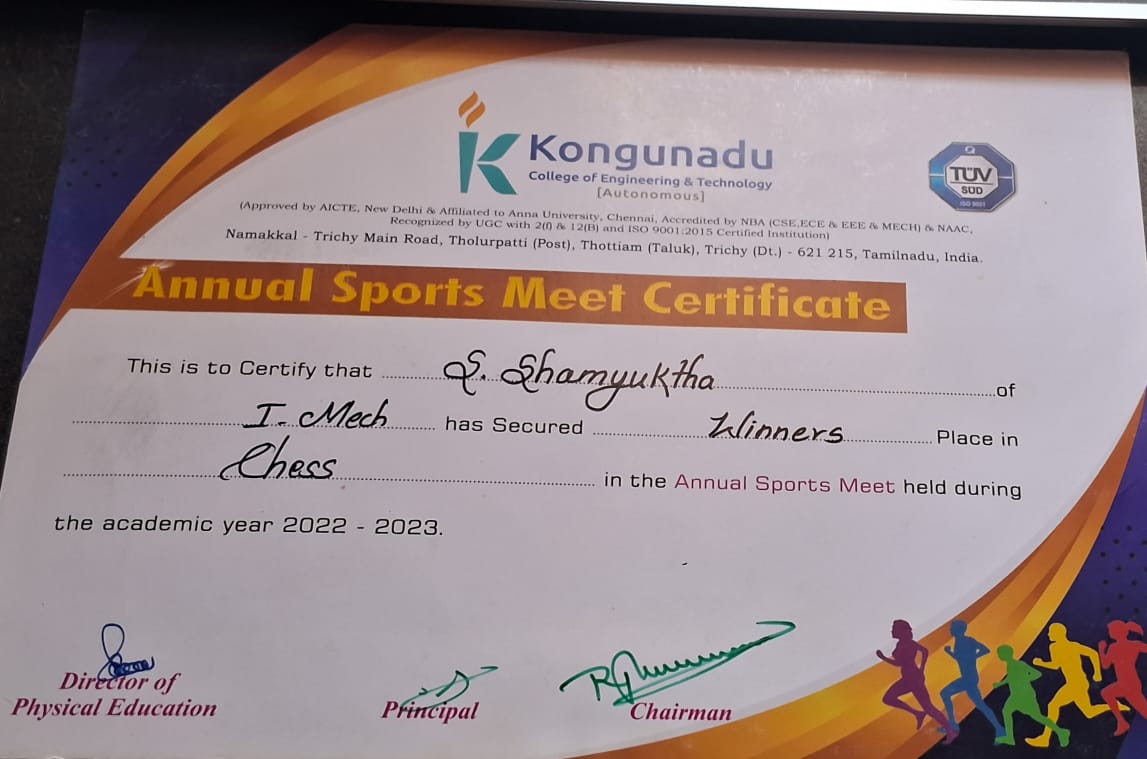 Kongunadu
College of Engineering & Technology
[Autonomous]
TÜV
SÜD
ISO 9001
(Approved by AICTE, New Delhi & Affiliated to Anna University, Chennai, Accredited by NBA (CSE,ECE & EEE & MECH) & NAAC,
Recognized by UGC with 2(f) & 12(B) and ISO 9001:2015 Certified Institution)
Namakkal - Trichy Main Road, Tholurpatti (Post), Thottiam (Taluk), Trichy (Dt.) - 621 215, Tamilnadu, India.
Annual Sports Meet Certificate
This is to Certify that S. Shamyuktha of
I. Mech has Secured Winners Place in
Chess in the Annual Sports Meet held during
the academic year 2022 - 2023.
Director of
Physical Education
Principal
Chairman